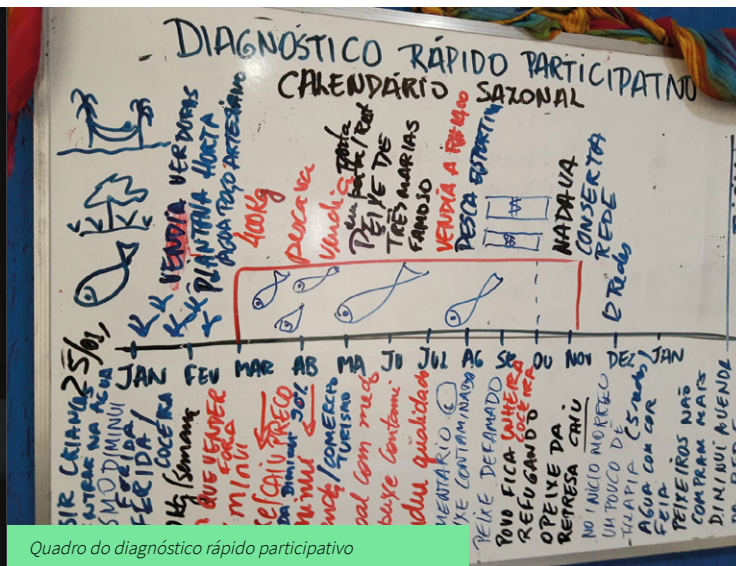 DIAGNÓSTICO RÁPIDO PARTICIPATIVO
CALENDÁRIO SAZONAL
25/01,
VENDIA VERDURAS
PLANTAVA HORTA
AGUA POÇO ARTESIANO
400Kg
pescava
vendia
PEIXE DE
TRÊS MARIAS
FAMOSO
VENDIA A
PESCA ESPORTIVA
$
$
NADAVA
CONSERTAVA
REDE
Redes
JAN
FEV
MAR
AB
MA
JU
JUL
AG
SE
OU
NOV
DEZ
JAN
CRIANÇ
ENTRAR NA ÁGUA
DIMINUI
FERIDA
FERIDA/
COCEIRA
Kg/semana
QUE VENDER
FORA
CAIU PREÇO
DIMINUI 90%
COMERCIO
TURISMO
com medo
peixe contami
qualidade
PEIXE DEFAMADO
POVO FICA
COCEIRA
REFUGANDO
O PEIXE DA
REPRESA CAIU
NO INICIO MORREU
UM POUCO DE
TILAPIA
AGUA COM COR
FEIA
PEIXEIROS NÃO
COMPRAM MAIS
DIMINUI A VENDA
Quadro do diagnóstico rápido participativo